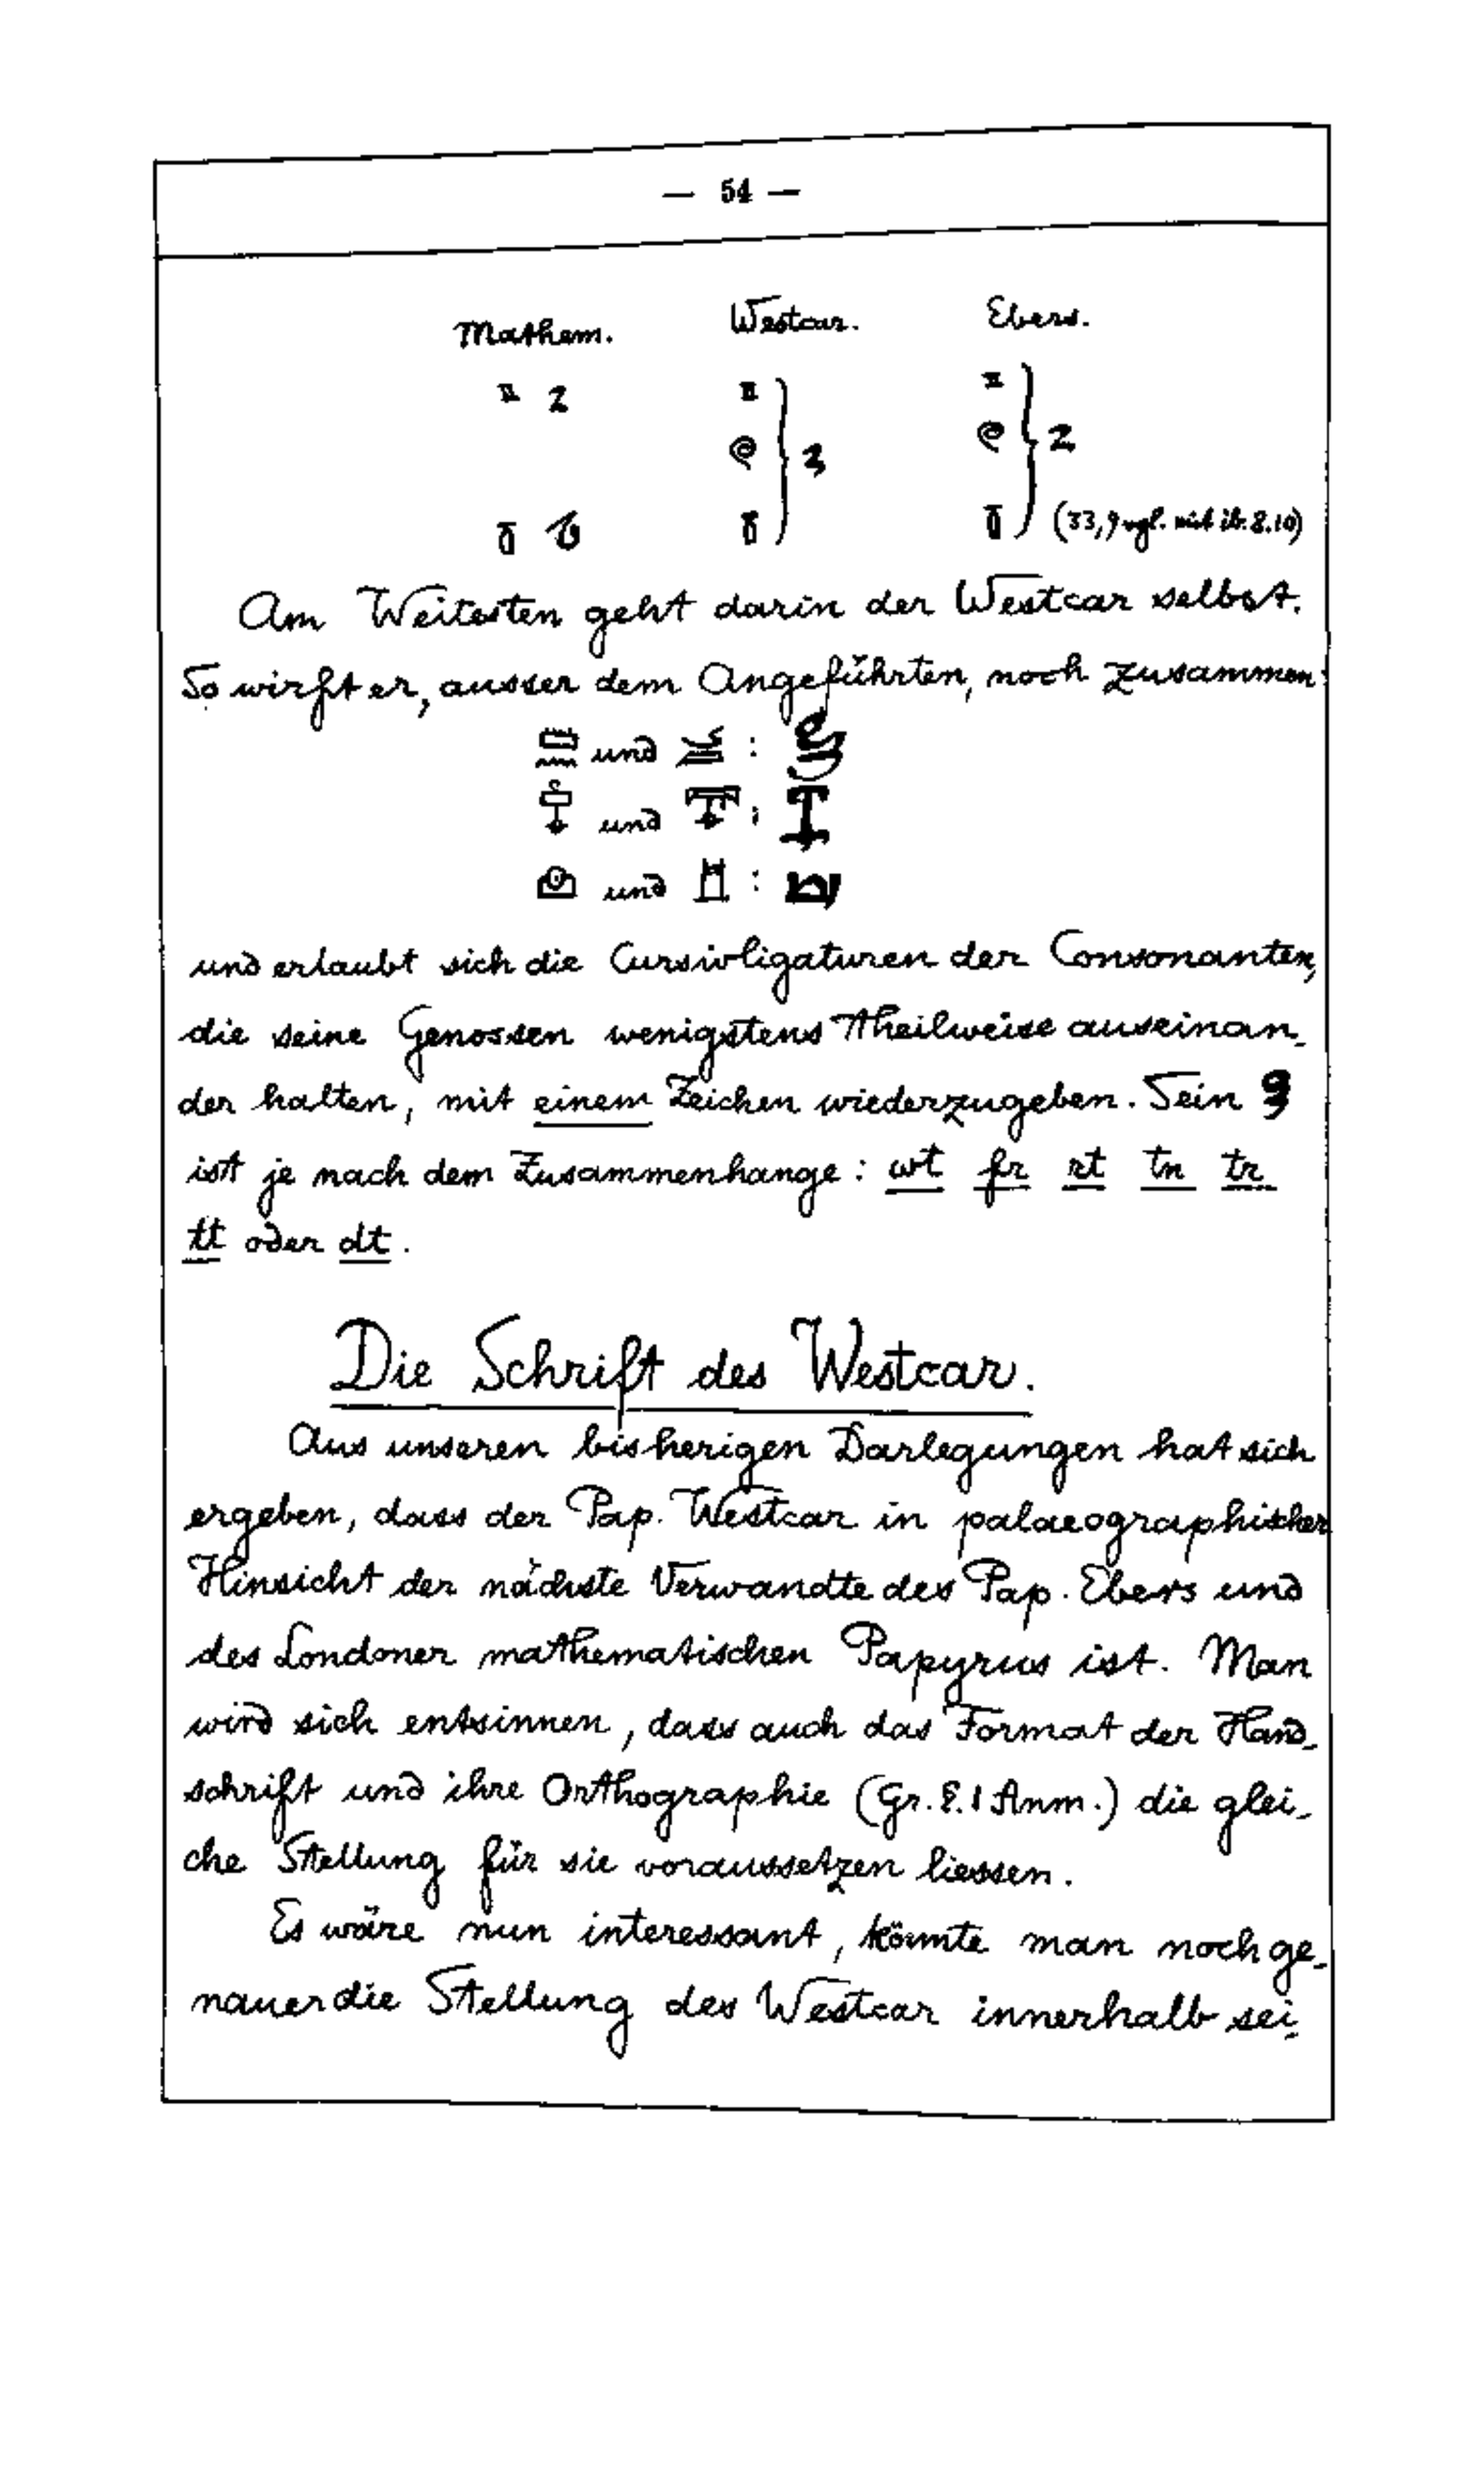 — 54 —
Mathem. Westcar. Ebers.
(33,9 vgl. mit ib. 8.10)
Am Weitesten geht darin der Westcar selbst.
So wirft er, ausser dem Angeführten, noch zusammen:
und :
und :
und :
und erlaubt sich die Cursivligaturen der Consonanten,
die seine Genossen wenigstens theilweise auseinan-
der halten, mit einem Zeichen wiederzugeben. Sein
ist je nach dem Zusammenhange: wt fr rt tn tr
tt oder dt.
Die Schrift des Westcar.
Aus unseren bisherigen Darlegungen hat sich
ergeben, dass der Pap. Westcar in palaeographischer
Hinsicht der nächste Verwandte des Pap. Ebers und
des Londoner mathematischen Papyrus ist. Man
wird sich entsinnen, dass auch das Format der Hand-
schrift und ihre Orthographie (Gr. §. 1 Anm.) die glei-
che Stellung für sie voraussetzen liessen.
Es wäre nun interessant, könnte man noch ge-
nauer die Stellung des Westcar innerhalb sei-